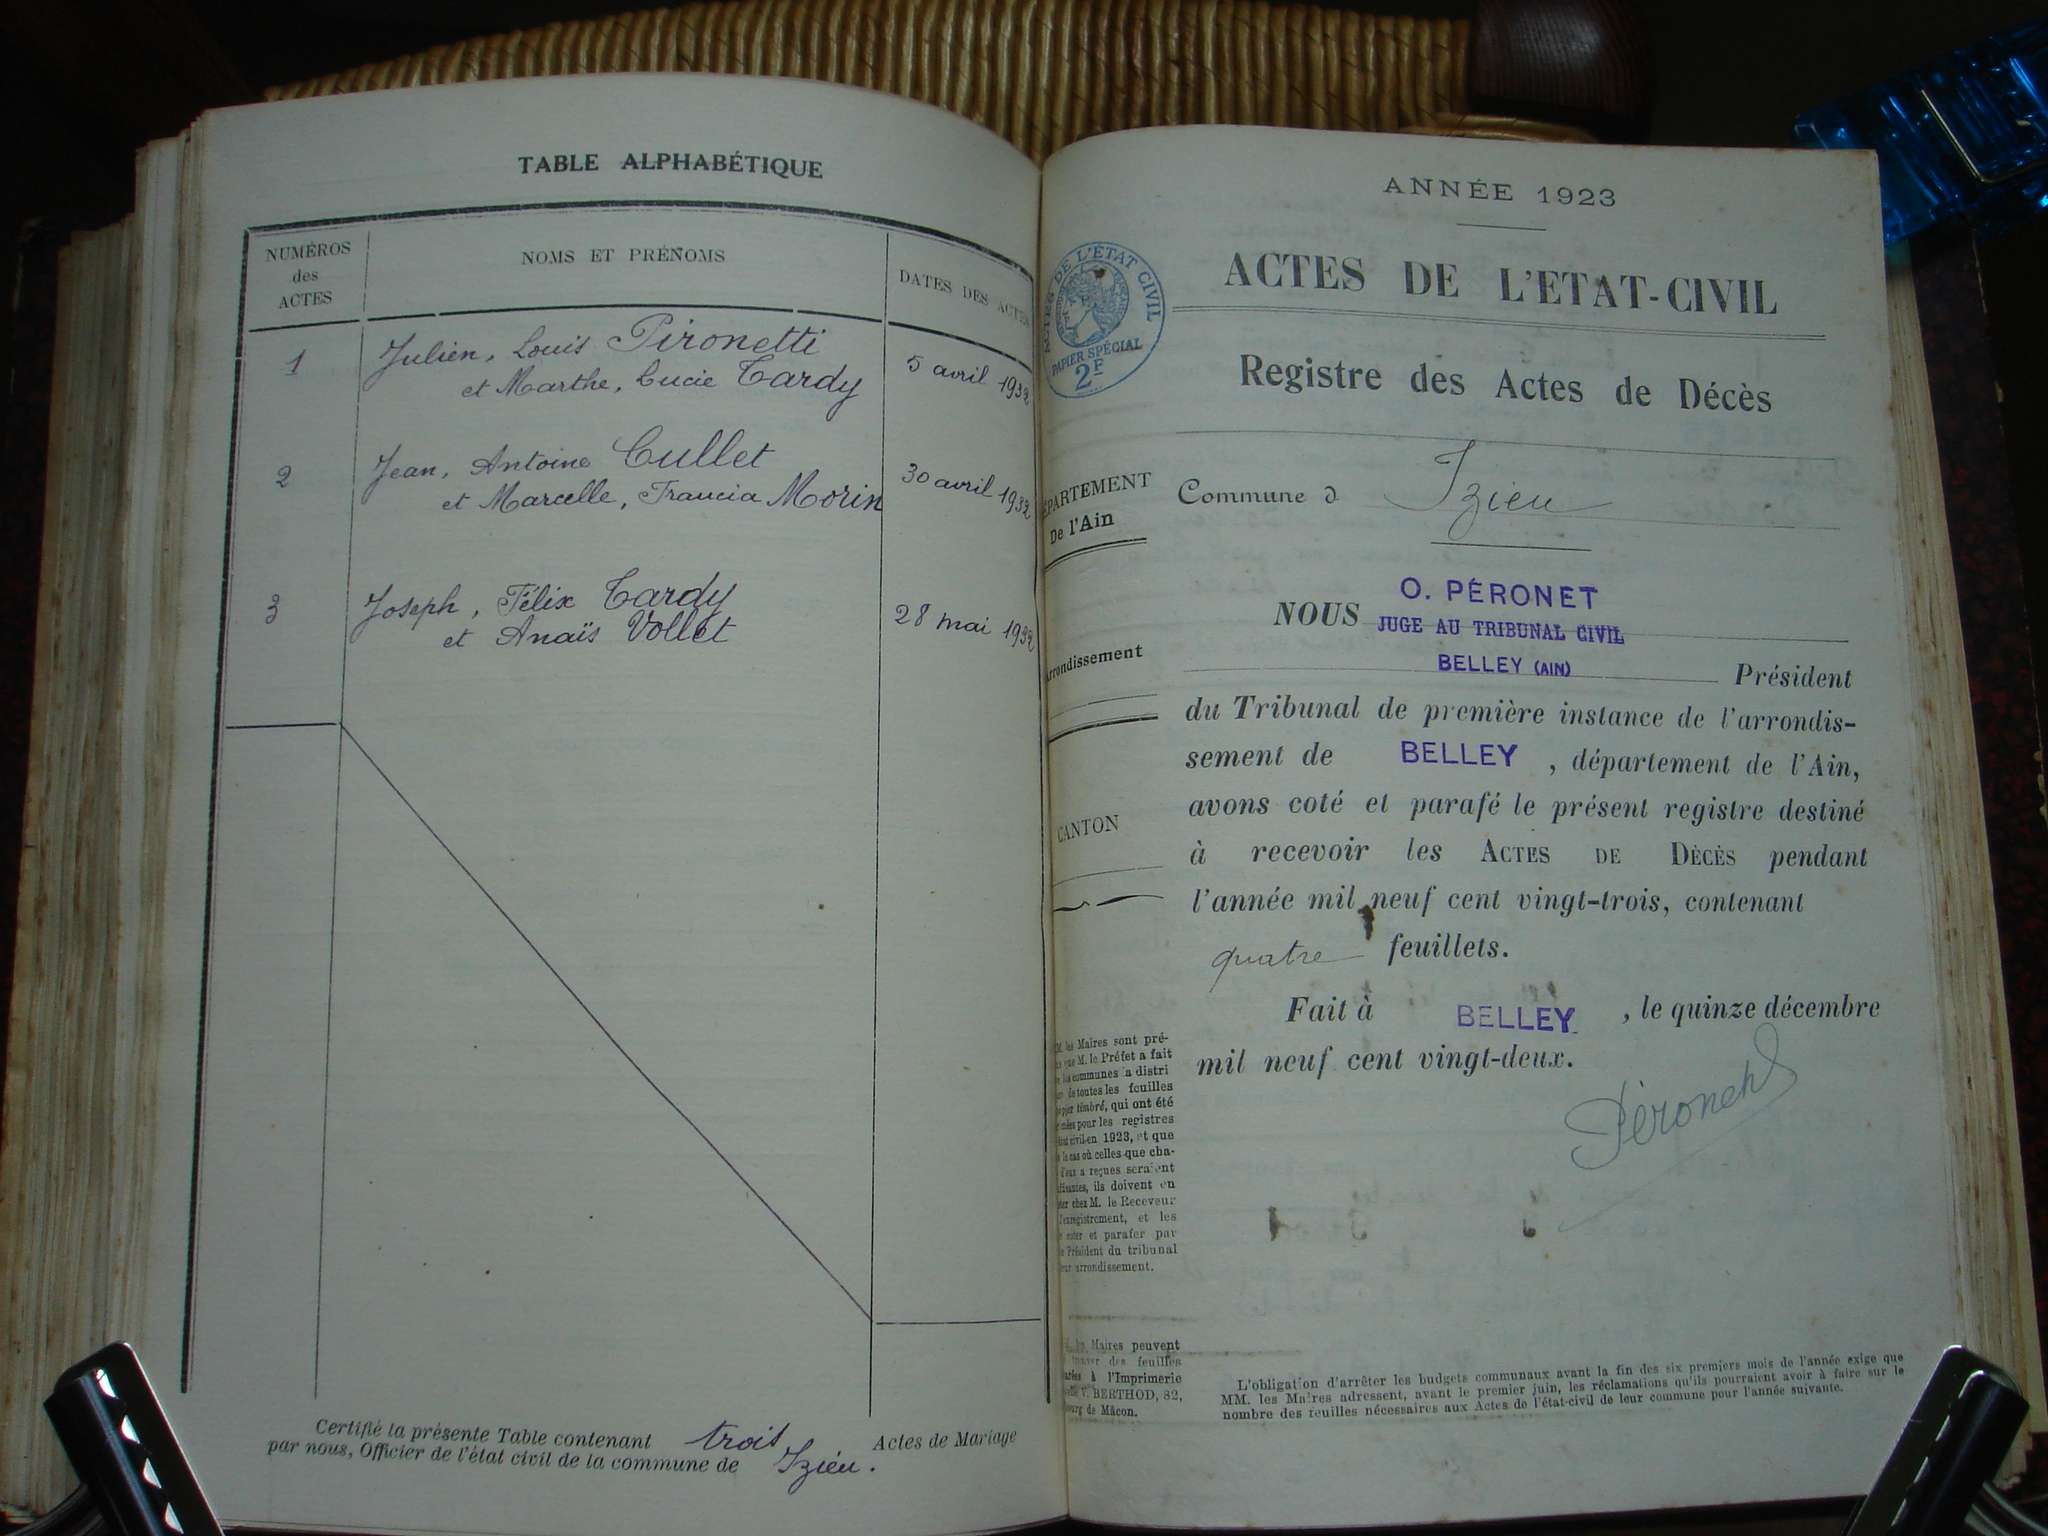 TABLE ALPHABÉTIQUE
NUMÉROS
des
ACTES
NOMS ET PRÉNOMS
DATES DES ACTES
1
Julien, Louis Pironetti
et Marthe, Lucie Tardy
5 avril 1932
2
Jean, Antoine Cullet
et Marcelle, Francia Morin
30 avril 1932
3
Joseph, Félix Tardy
et Anaïs Vollet
28 mai 1932
Certifié la présente Table contenant trois Actes de Mariage
par nous, Officier de l'état civil de la commune de Izieu.
ANNÉE 1923
ACTES DE L'ÉTAT CIVIL
PAPIER SPÉCIAL
2F
ACTES DE L'ETAT-CIVIL
Registre des Actes de Décès
Commune d Izieu
ÉPARTEMENT
De l'Ain
rrondissement
CANTON
O. PÉRONET
NOUS JUGE AU TRIBUNAL CIVIL
BELLEY (AIN)
Président
du Tribunal de première instance de l'arrondis-
sement de BELLEY, département de l'Ain,
avons coté et parafé le présent registre destiné
à recevoir les ACTES DE DÉCÈS pendant
l'année mil neuf cent vingt-trois, contenant
quatre feuillets.
Fait à BELLEY, le quinze décembre
mil neuf cent vingt-deux.
Péronet
M. les Maires sont pré-
que M. le Préfet a fait
communes a distri
de toutes les feuilles
timbré, qui ont été
pour les registres
civil en 1923, et que
le cas où celles que cha-
d'eux a reçues seraient
ils doivent en
chez M. le Receveur
l'enregistrement, et les
coter et parafer par
le Président du tribunal
arrondissement.
Maires peuvent
trouver des feuilles
à l'Imprimerie
V. BERTHOD, 82,
de Mâcon.
L'obligation d'arrêter les budgets communaux avant la fin des six premiers mois de l'année exige que
MM. les Maires adressent, avant le premier juin, les réclamations qu'ils pourraient avoir à faire sur le
nombre des feuilles nécessaires aux Actes de l'état-civil de leur commune pour l'année suivante.